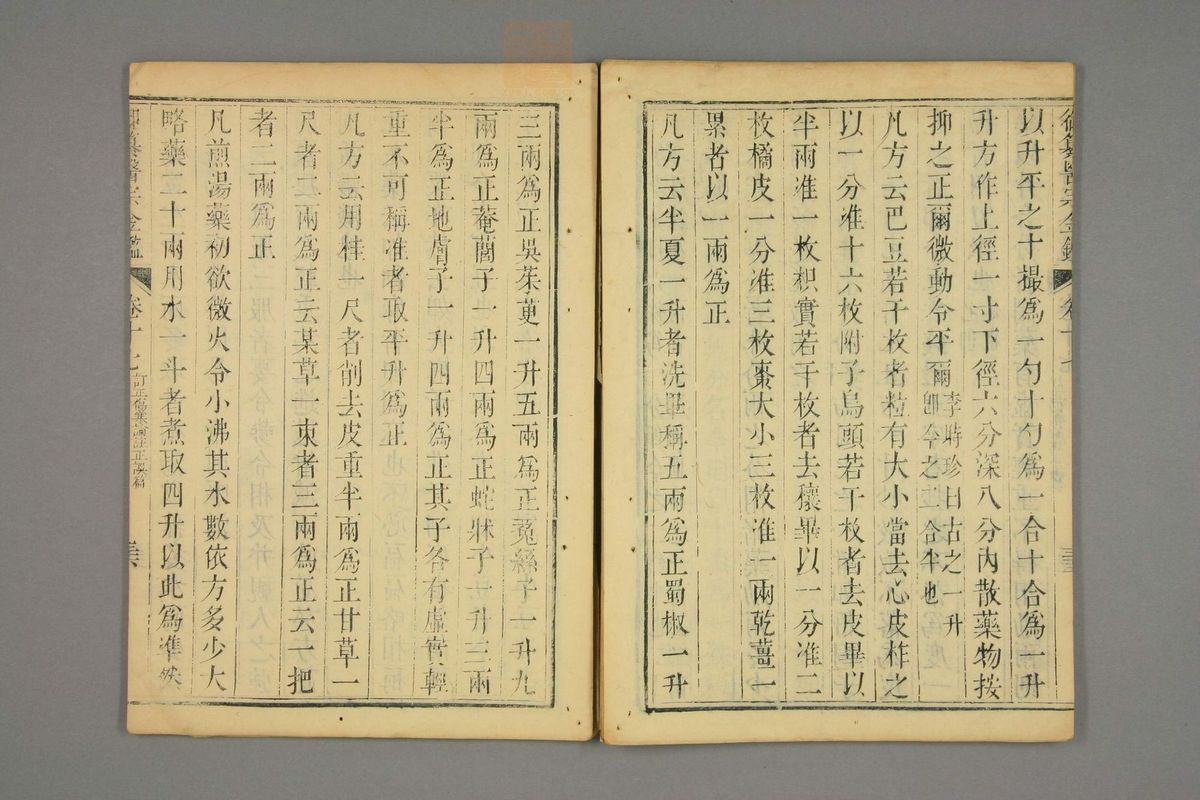 御纂醫宗金鑑 卷十七 三
以升平之十撮爲一勺十勺爲一合十合爲一升
升方作上徑一寸下徑六分深八分內散藥物按
抑之正爾微動令平爾李時珍曰古之一升卽今之二合半也
凡方云巴豆若干枚者粒有大小當去心皮柞之
以一分准十六枚附子烏頭若干枚者去皮畢以
半兩准一枚枳實若干枚者去穰畢以一分准二
枚橘皮一分准三枚棗大小三枚准一兩乾薑一
累者以一兩爲正
凡方云半夏一升者洗畢稱五兩爲正蜀椒一升
三兩爲正吳茱萸一升五兩爲正菟絲子一升九
兩爲正菴䕡子一升四兩爲正蛇牀子一升三兩
半爲正地膚子一升四兩爲正其子各有虛實輕
重不可稱准者取平升爲正
凡方云用桂一尺者削去皮重半兩爲正甘草一
尺者二兩爲正云某草一束者三兩爲正云一把
者二兩爲正
凡煎湯藥初欲微火令小沸其水數依方多少大
略藥二十兩用水一斗者煮取四升以此爲準然
御纂醫宗金鑑 卷十七 訂正傷寒論註正誤篇